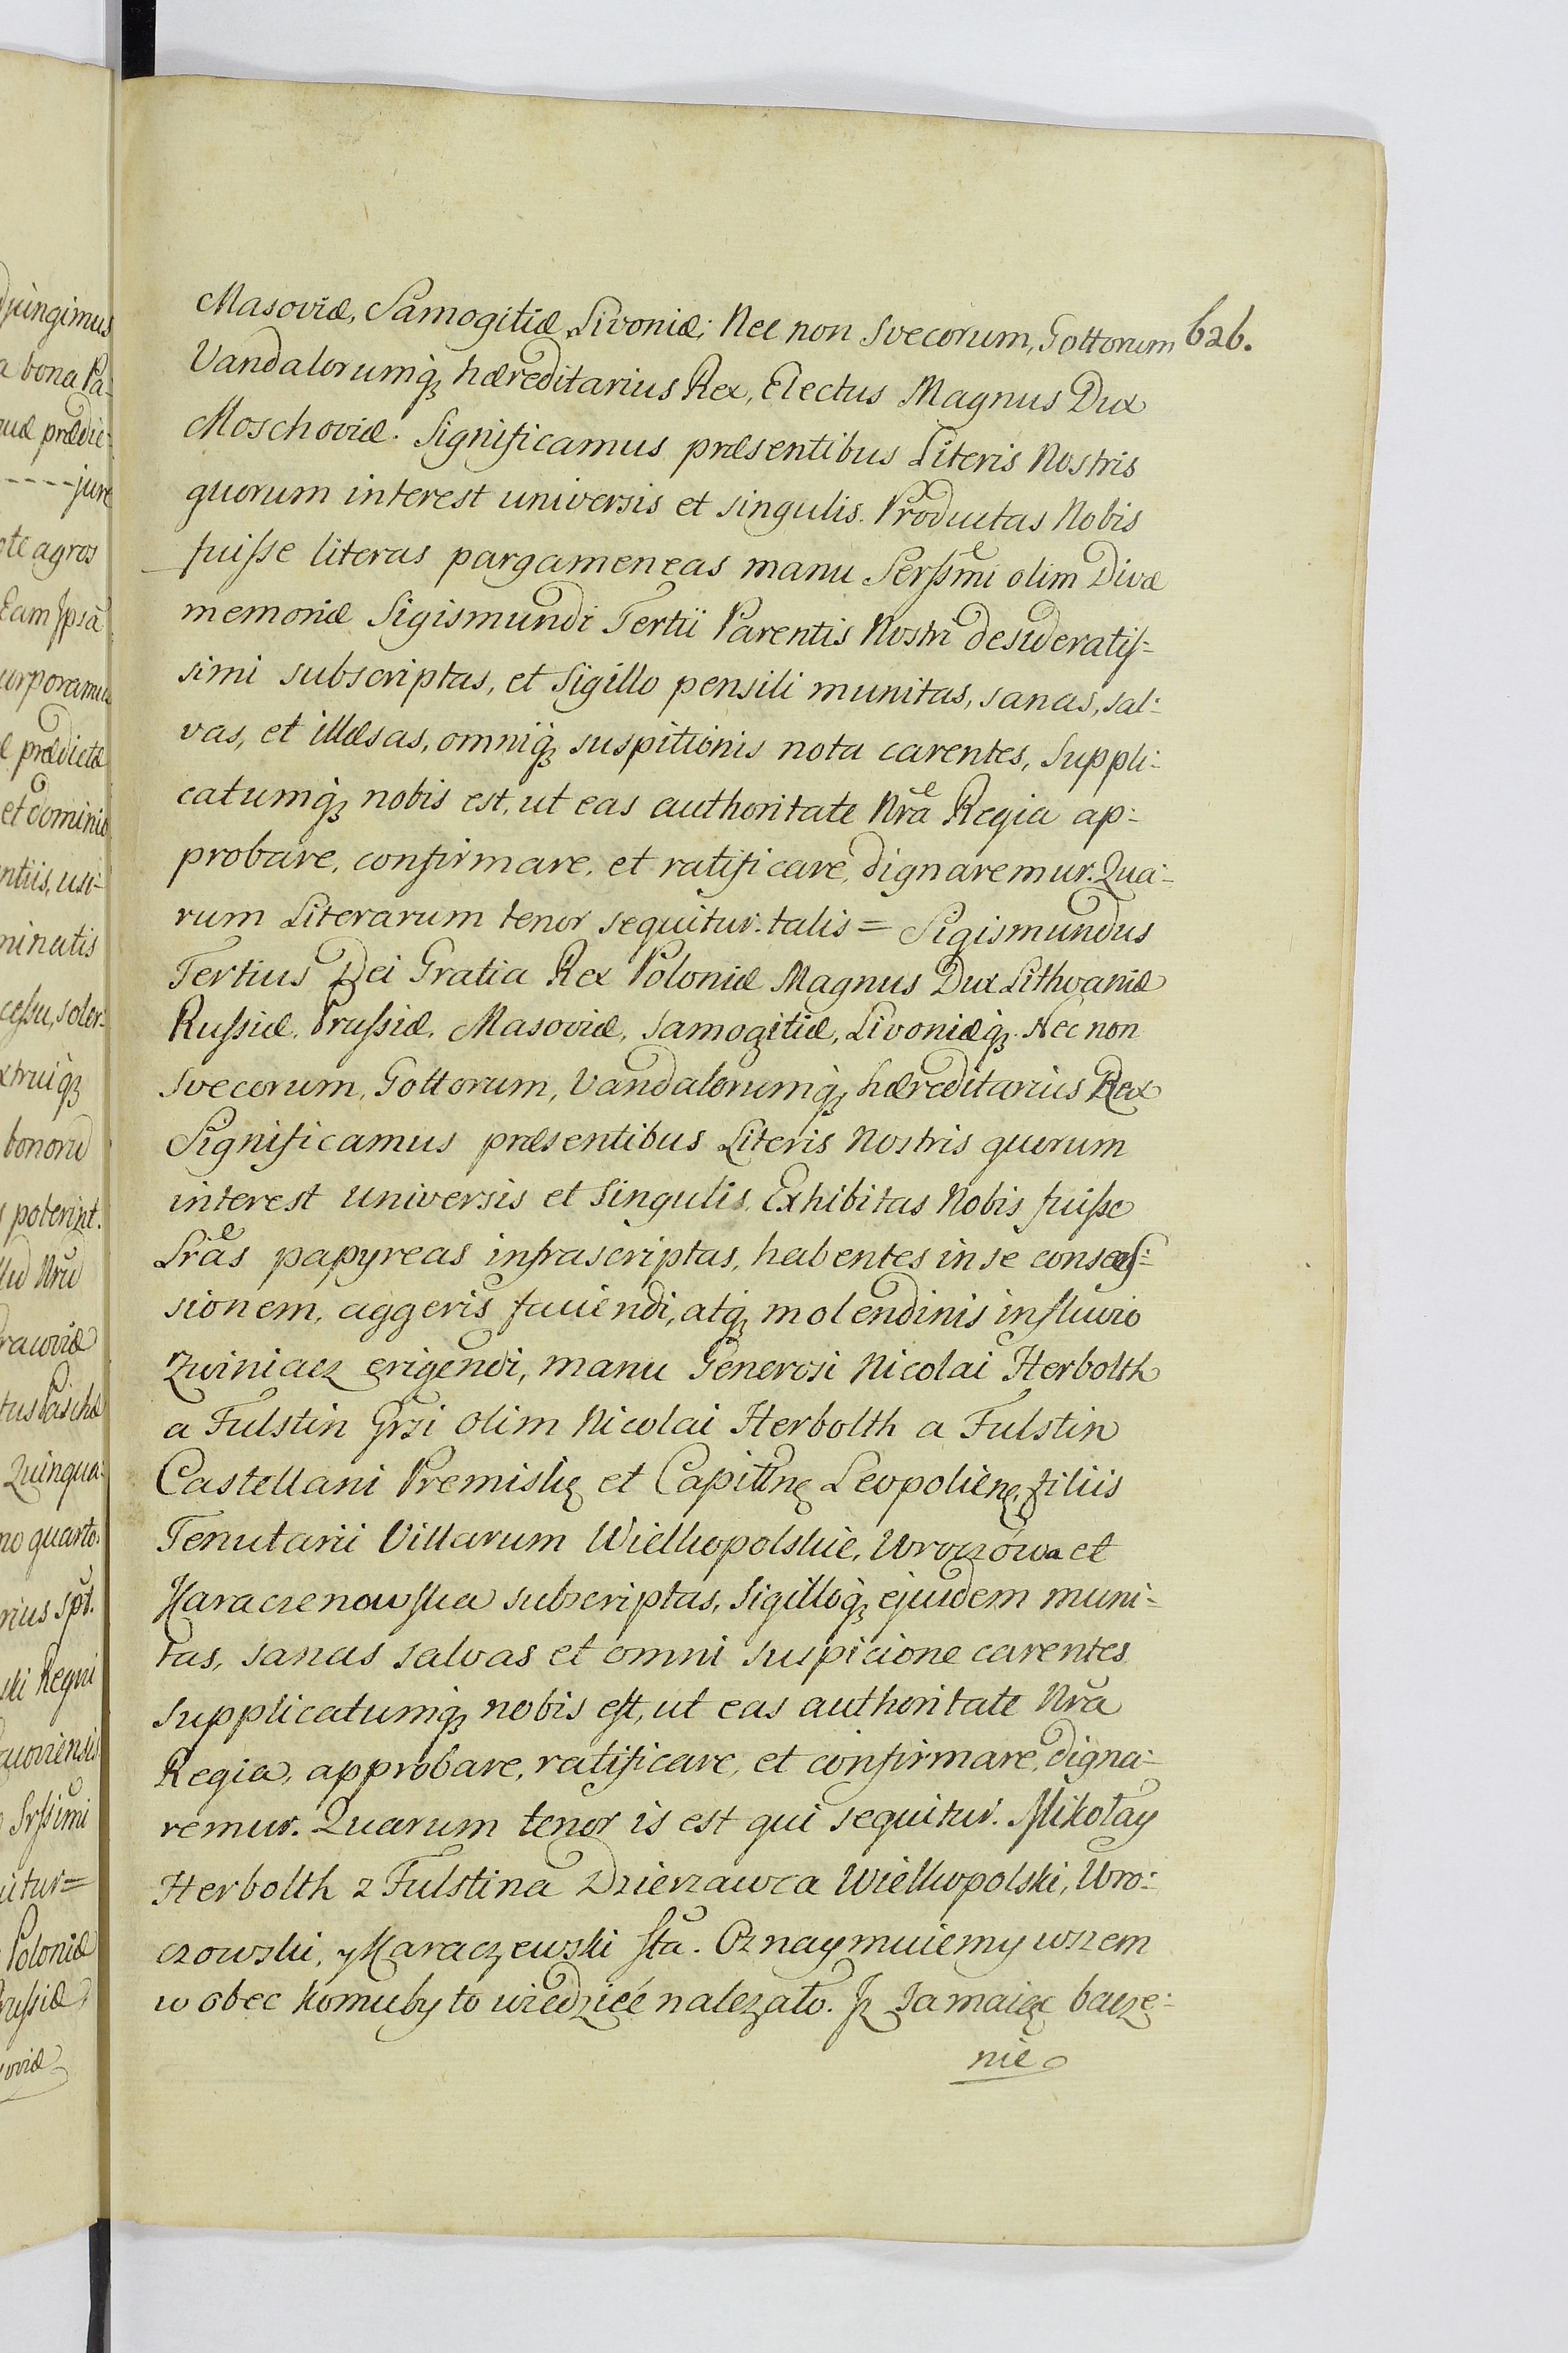 Masoviæ, Samogitiæ, Livoniæ; Nec non Svecorum, Gottorum 626.
Vandalorumq́ꝫ hæreditarius Rex, Electus Magnus Dux
Moschoviæ. Significamus præsentibus Literis Nostris
quorum interest universis et singulis. Productas Nobis
fuisse literas pargameneas manu Serssmi olim Divæ
memoriæ Sigismundi Tertii Parentis Nostri desideratis-
simi subscriptas, et Sigillo pensili munitas, sanas, sal-
vas, et illæsas, omniq́ꝫ suspitionis nota carentes, Suppli-
catumq́ꝫ nobis est, ut eas authoritate Nrã Regia ap-
probare, confirmare, et ratificare, dignaremur. Qua-
rum Literarum tenor sequitur talis = Sigismundus
Tertius Dei Gratia Rex Poloniæ Magnus Dux Lithvaniæ
Russiæ, Prussiæ, Masoviæ, Samogitiæ, Livoniæq́ꝫ. Nec non
Svecorum, Gottorum, Vandalorumq́ꝫ hæreditarius Rex
Significamus præsentibus Literis Nostris quorum
interest universis et singulis, Exhibitas Nobis fuisse
Lrãs papyreas infrascriptas, habentes in se conces-
sionem, aggeris faciendi, atq́ꝫ molendinis in fluvio
Zwiniacz erigendi, manu Generosi Nicolai Herbolth
a Fulstin Grsi olim Nicolai Herbolth a Fulstin
Castellani Premislię et Capittnę Leopolienę, filiis
Tenutarii Villarum Wielhopolskie, Wroczówa et
Karaczenowska subscriptas, Sigilloq́ꝫ ejusdem muni-
tas, sanas salvas et omni suspicione carentes
supplicatumq́ꝫ nobis est, ut eas authoritate Nrã
Regia, approbare, ratificare, et confirmare, digna-
remur. Quarum tenor is est qui sequitur. Mikołay
Herbolth z Fulstina Dzierzawca Wielhopolski, Wro-
czowski, y Karaczewski Sta. Oznaymuiemy wszem
w obec komuby to wiedzieć nalezało. Jz Ja maiąc bacze-
nie